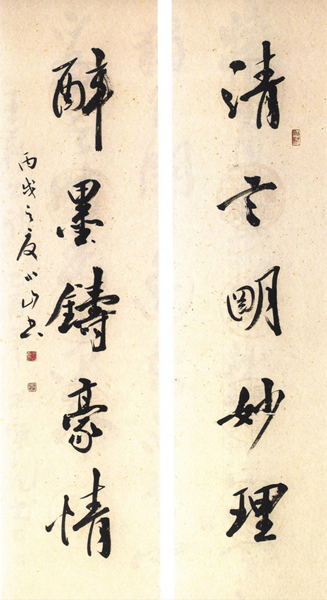 清言明妙理
醉墨鑄豪情
丙戌之夏小山書